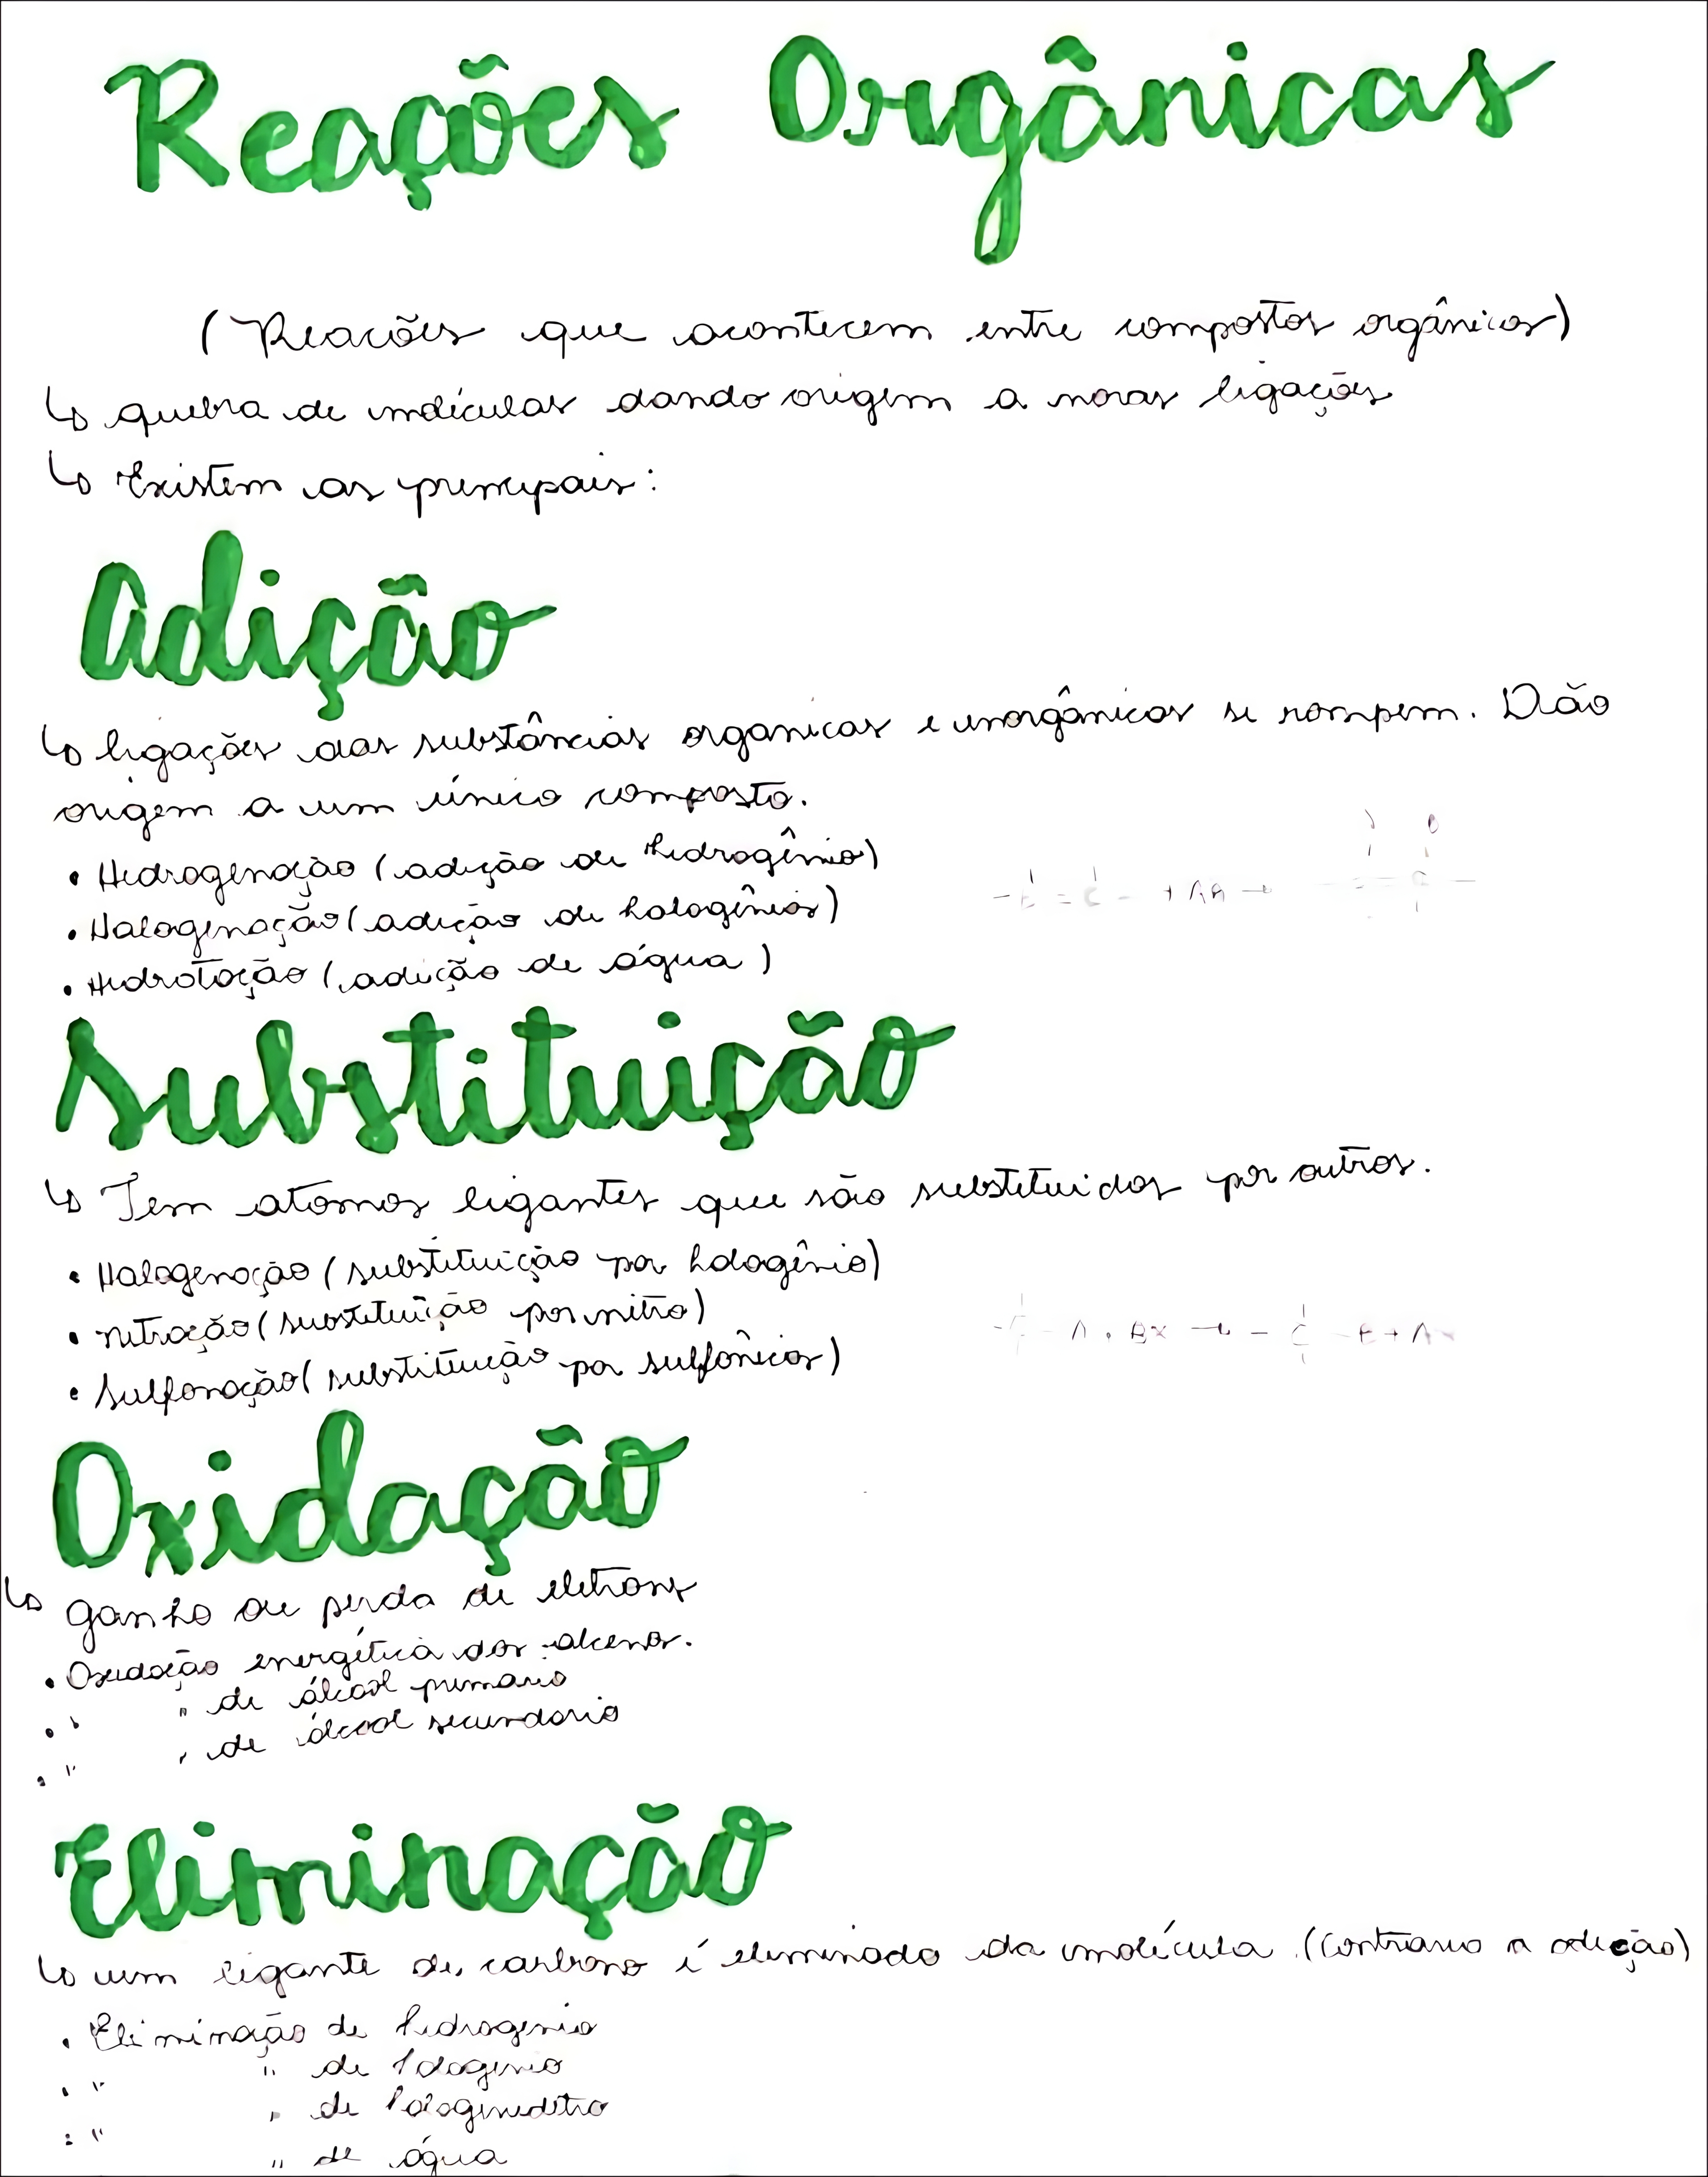 Reações Orgânicas
(Reacões que acontecem entre compostos orgânicos)
↳ quebra de moléculas dando origem a novas ligações
↳ Existem as principais:
Adição
↳ ligações das substâncias organicas e inorgânicas se rompem. Dão
origem a um único composto.
• Hidrogenação (adição de hidrogênio)
• Halogenação (adição de halogênios)
• Hidratação (adição de água)
Substituição
↳ Tem atomos ligantes que são substituidos por outros.
• Halogenação (substituição por halogênio)
• nitração (substituição por nitro)
• Sulfonação (substituição por sulfônicos)
Oxidação
↳ ganho ou perda de eletrons
• Oxidação energética dos alcenos.
• " " de álcool primario
• " " de álcool secundario
Eliminação
↳ um ligante de carbono é eliminado da molécula (contrario a adição)
• Eliminação de hidrogenio
• " " de halogenio
• " " de
" de água